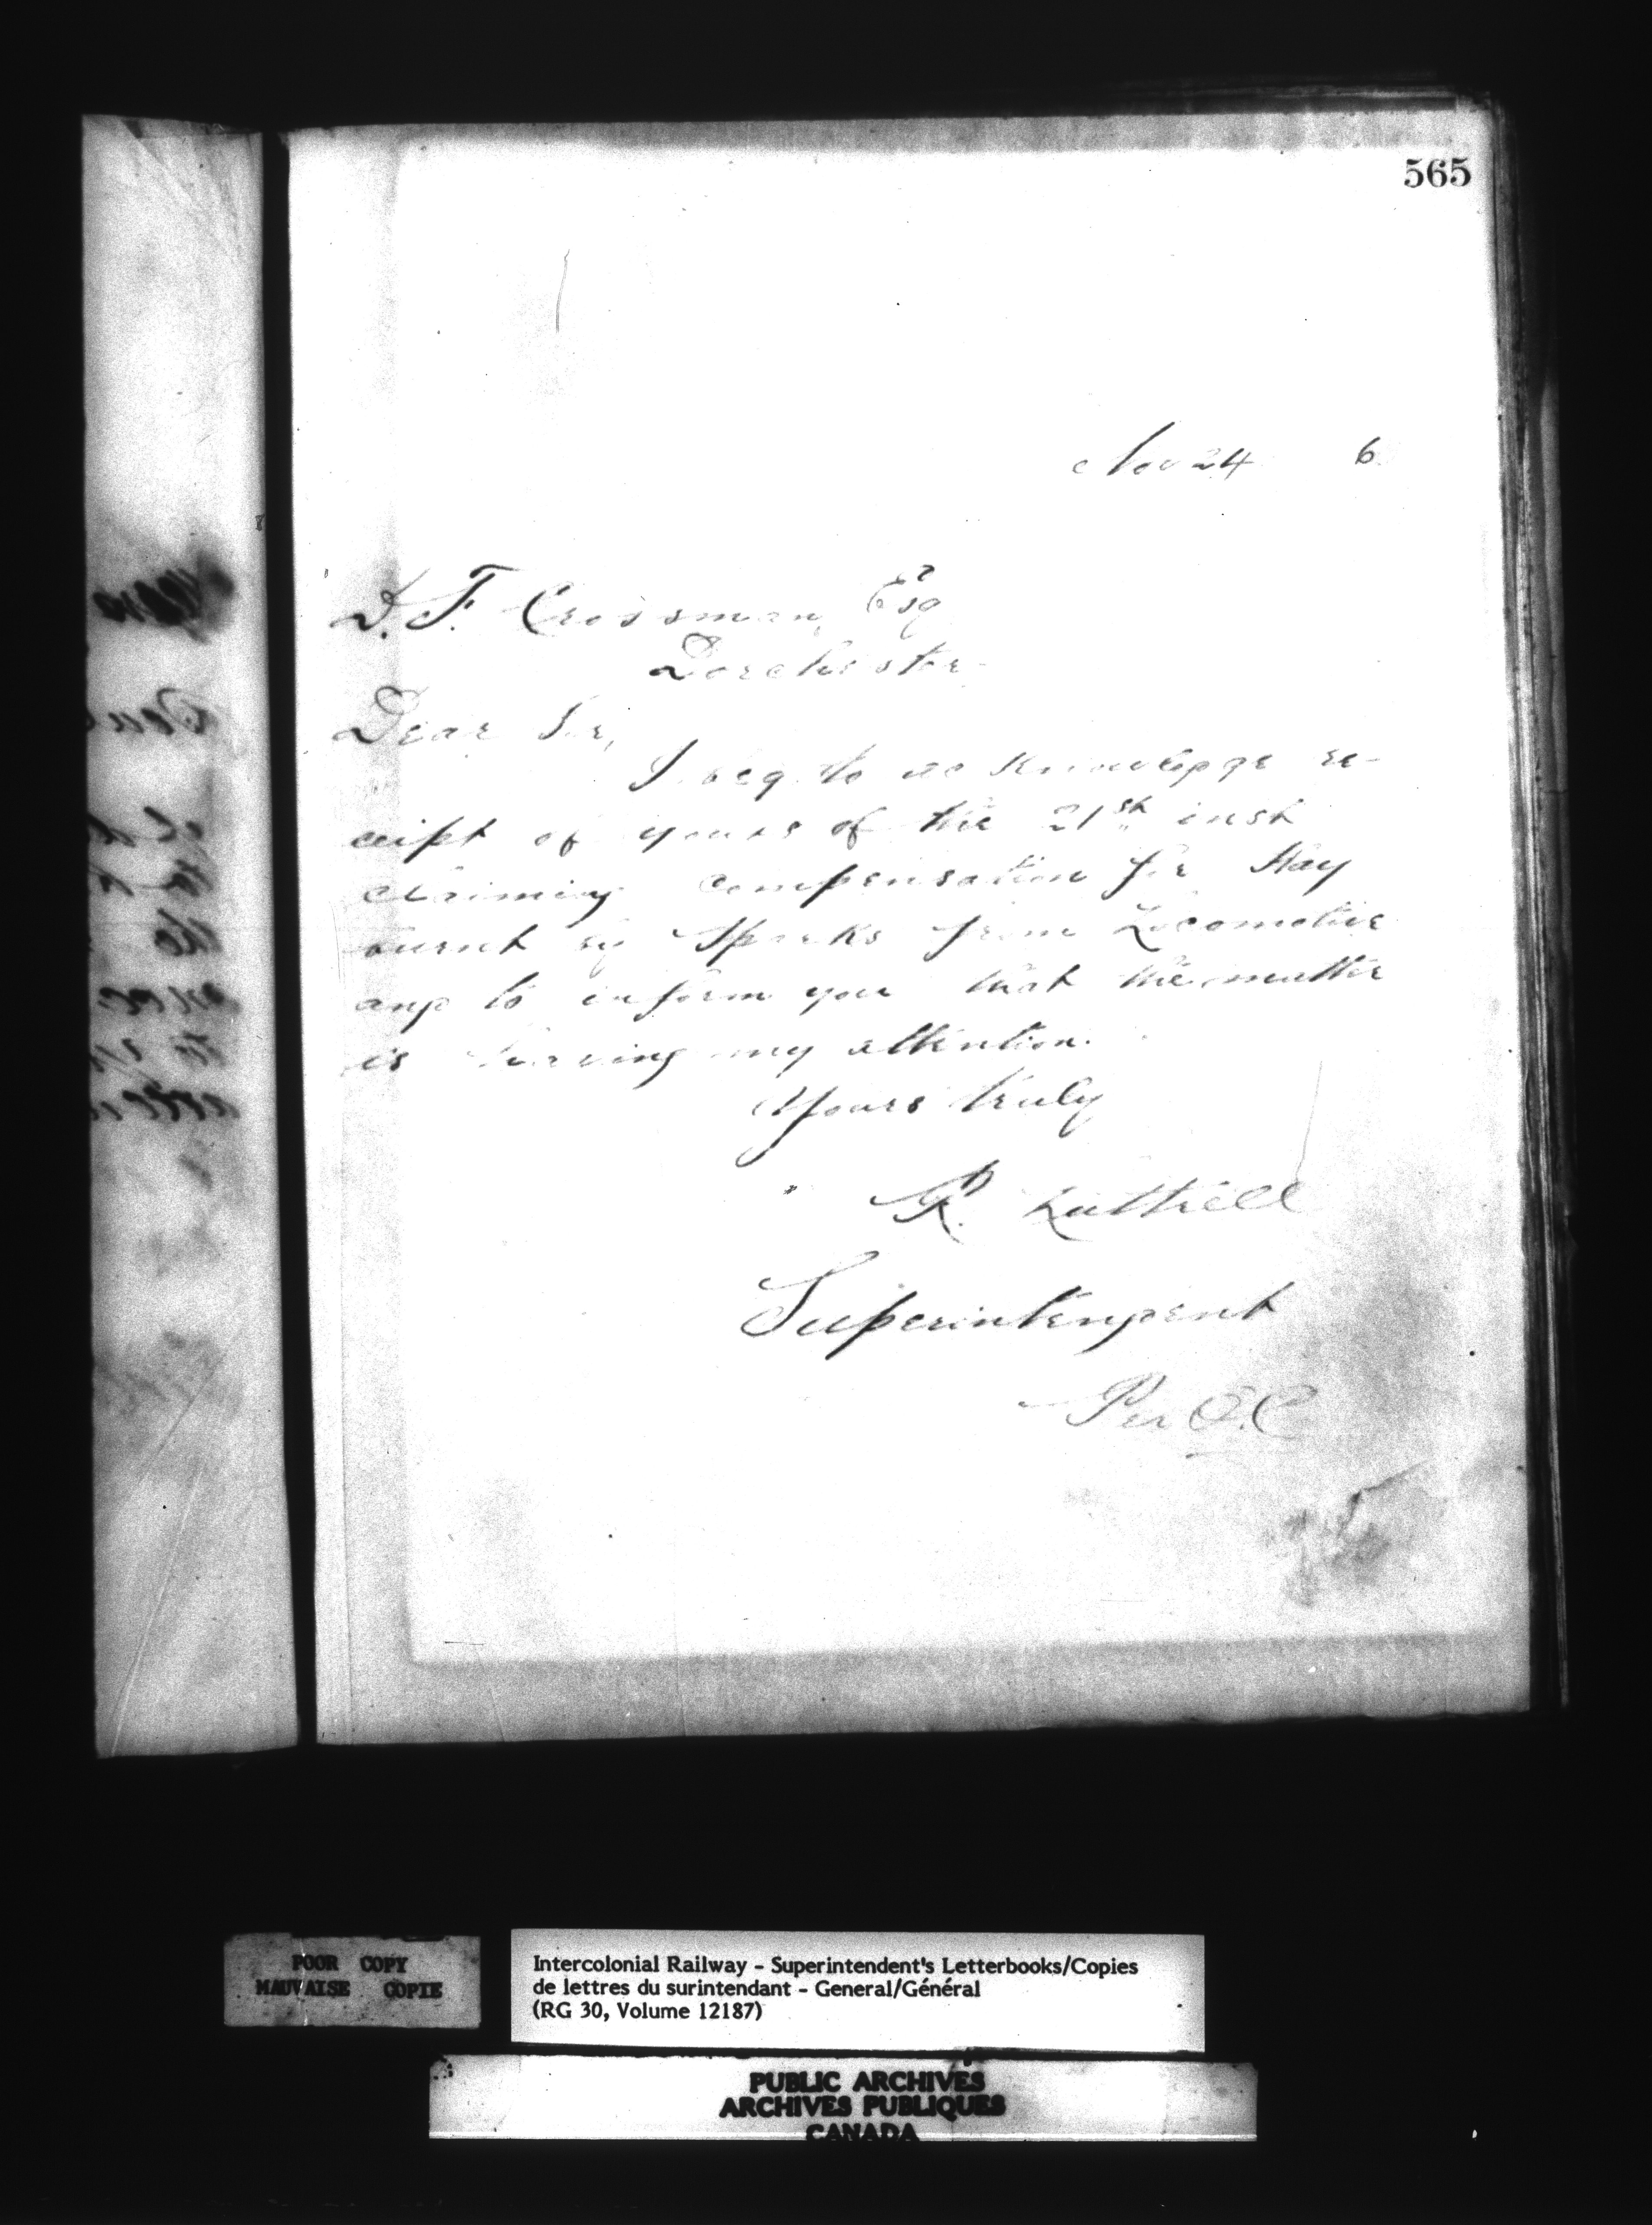 565
Nov 24 6
D. F. Crossman, Esq
Dorchester
Dear Sir,
I beg to acknowledge re-
ceipt of yours of the 21st inst
claiming compensation for Hay
burnt by Sparks from Locomotive
and to inform you that the matter
is having my attention.
Yours truly
R. Luttrell
Superintendent
Per O.C
POOR COPY
MAUVAISE COPIE
Intercolonial Railway - Superintendent's Letterbooks/Copies
de lettres du surintendant - General/Général
(RG 30, Volume 12187)
PUBLIC ARCHIVES
ARCHIVES PUBLIQUES
CANADA